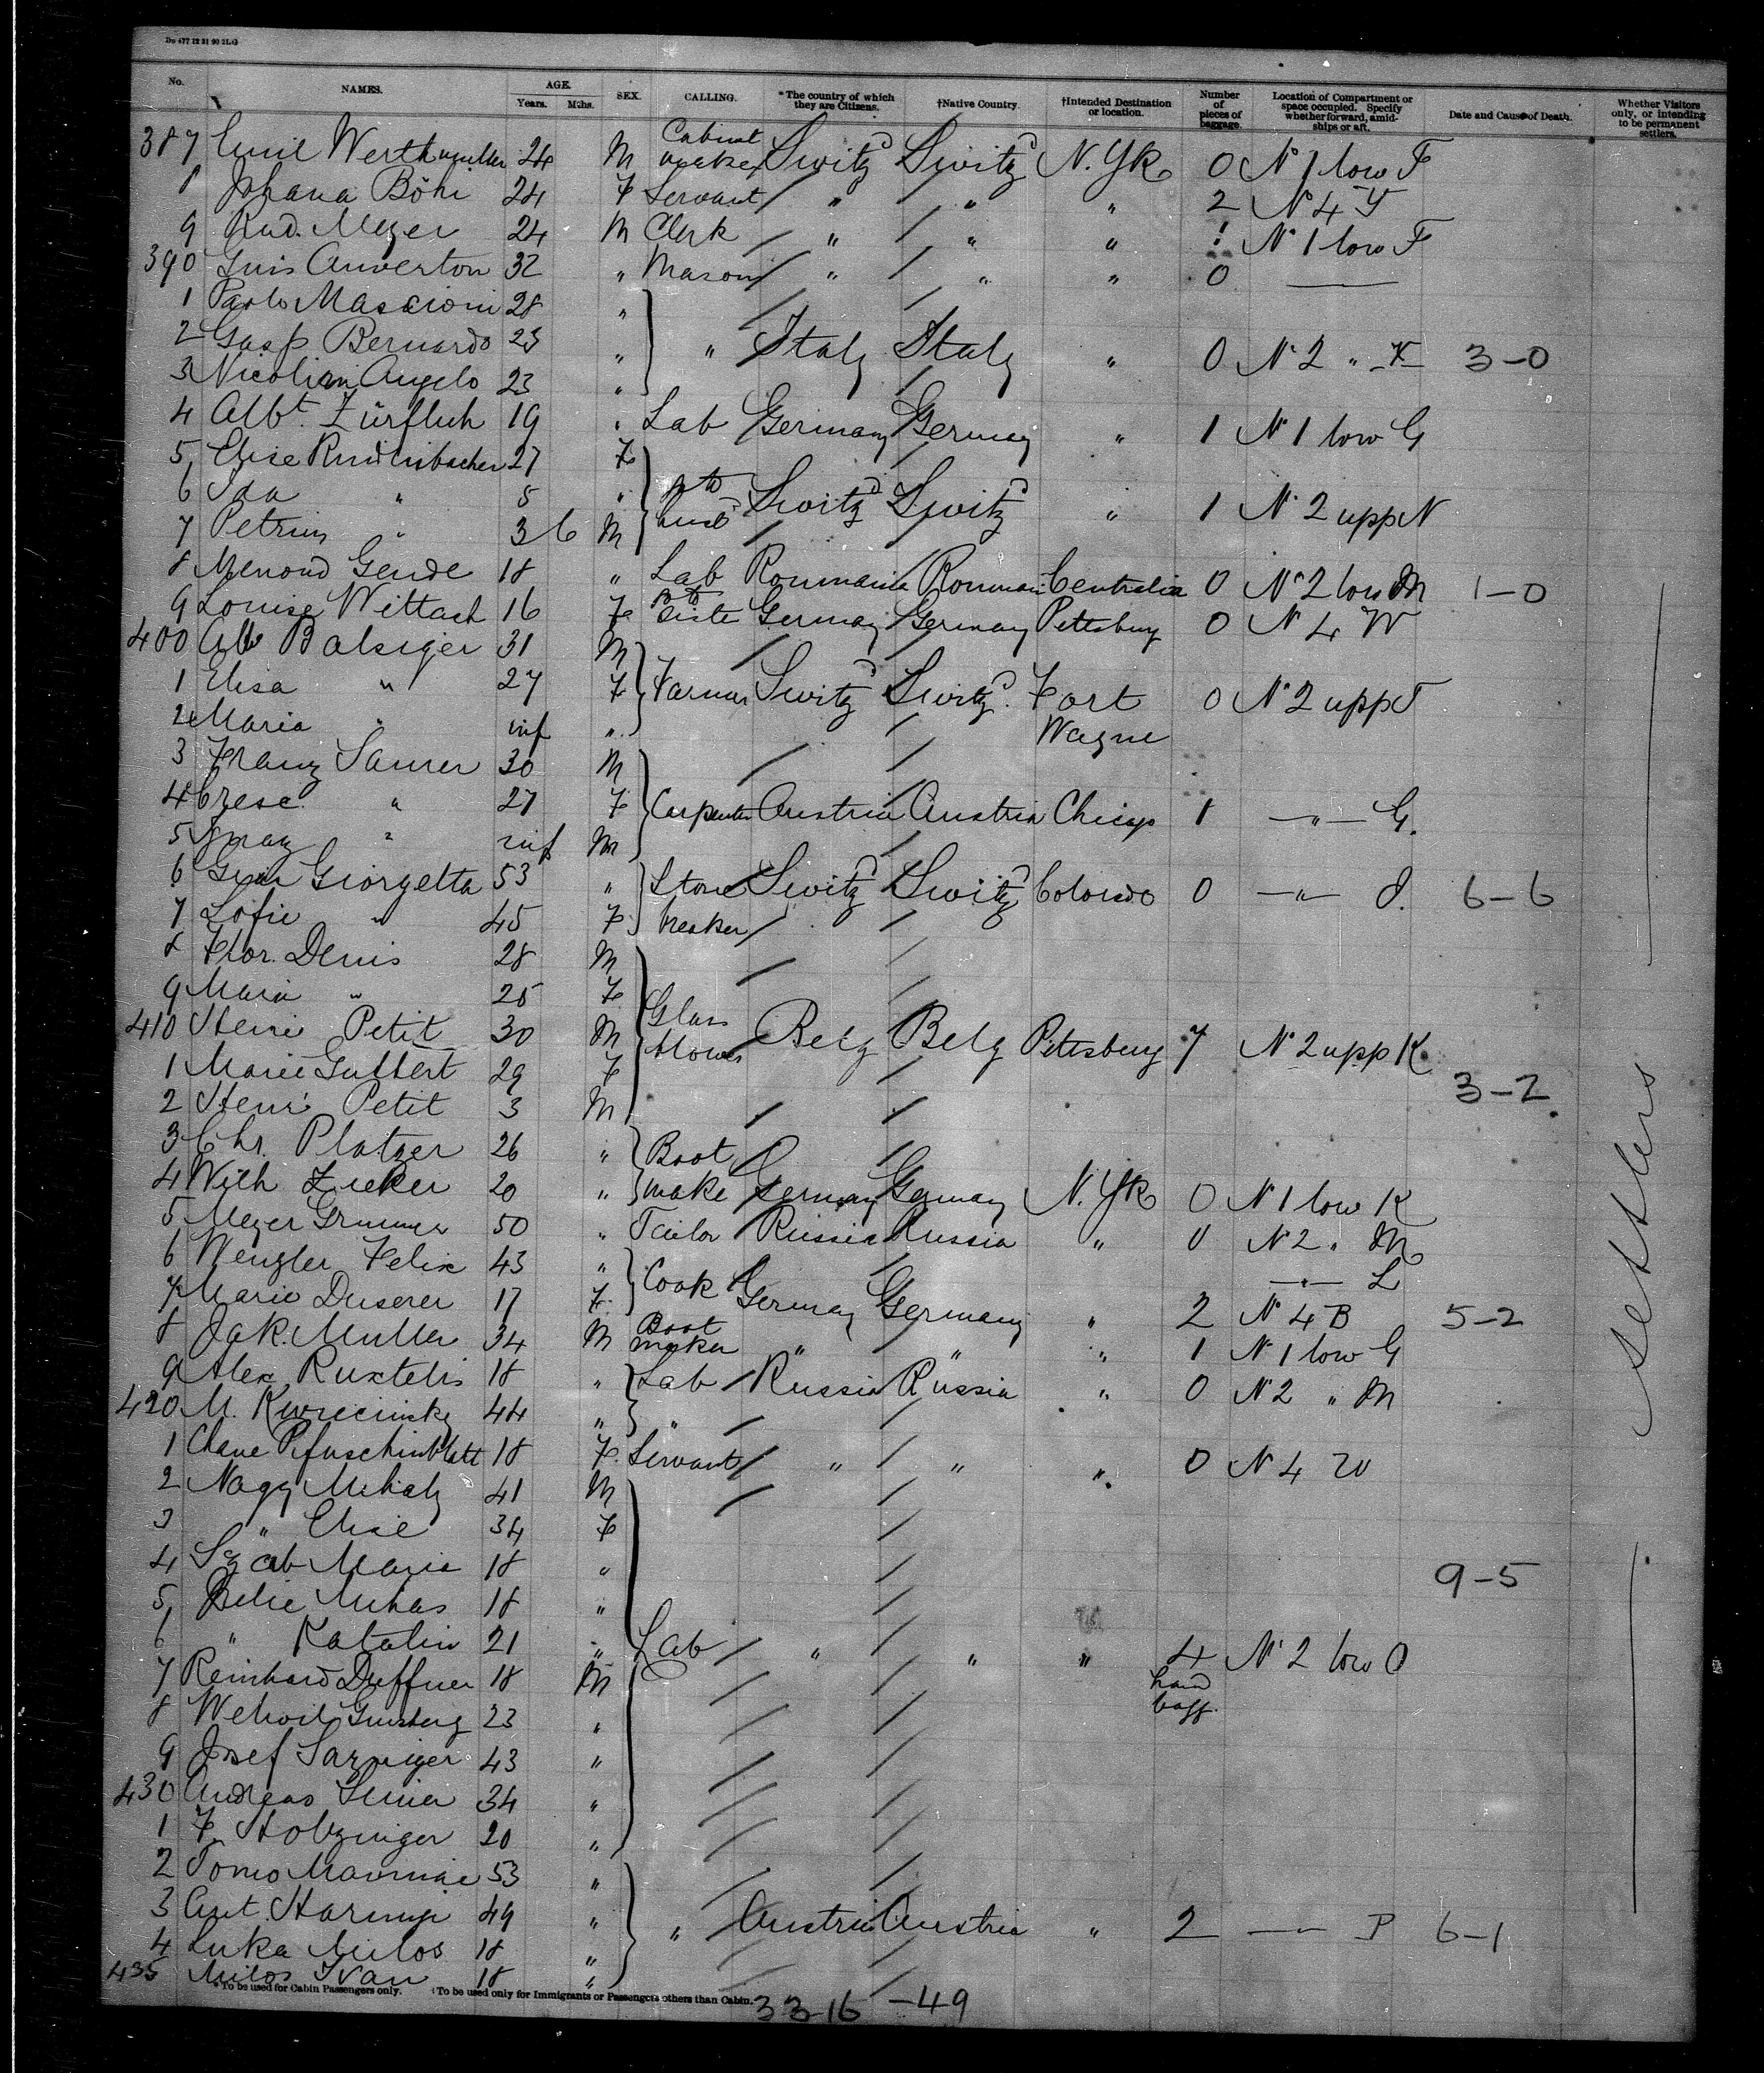 No. NAMES. AGE. Years. Mths. SEX. CALLING. *The country of which they are Citizens. †Native Country. †Intended Destination or location. Number of pieces of baggage. Location of Compartment or space occupied. Specify whether forward, amidships or aft. Date and Cause of Death. Whether Visitors only, or intending to be permanent settlers.
387 Emil Werthmuller 24 M Cabinet maker Switzd Switzd N. Yk 0 No 1 low F
8 Johana Böhi 24 F Servant " " " 2 No 4 Y
9 Rud. Meyer 24 M Clerk " " " 1 No 1 low F
390 32 " Mason " " " 0
1 Paolo Mascioni 28 "
2 Gasp Bernardo 23 " " Italy Italy " 0 No 2 " F 3-0
3 Nicolini Angelo 23 "
4 Albt. Zürfluh 19 " Lab Germany Germany " 1 No 1 low G
5 Elise 27 F
6 Ida " 5 " to husb Switzd Switzd " 1 No 2 upp N
7 " 3 6 M
8 Gende 18 " Lab Roumania Rouman Centralia 0 No 2 low M 1-0
9 Louise Wittach 16 F to siste Germany Germany Pettsburg 0 No 4 W
400 Alb Balsiger 31 M
1 Elisa " 27 F Farmer Switzd Switzd. Fort Wayne 0 No 2 upp T
2 Maria " inf "
3 Franz Saurer 30 M
4 Cresc. " 27 F Carpenter Austria Austria Chicago 1 —"— G.
5 " inf M
6 Giorgetta 53 " Stone breaker Switzd Switzd Colorado 0 —"— O. 6-6
7 Sofie " 45 F
8 Flor. Denis 28 M
9 Maria " 25 F
410 Henri Petit 30 M Glass blower Belg Belg Pittsburg 7 No 2 upp K
1 Marie 29 F 3-2
2 Henri Petit 3 M
3 Chr. Platzer 26 " Boot
4 Wilh 20 " make Germany Germany N. Yk 0 No 1 low K
5 Meyer 50 " Tailor Russia Russia " 0 No 2 " M
6 Wenzler Felix 43 " Cook —"— L
7 Marie Duserer 17 F Germany Germany " 2 No 4 B 5-2
8 Jak. Muller 34 M Boot maker " " " 1 No 1 low G
9 Alex Ruxtelis 18 " Lab Russia Russia " 0 No 2 " M
420 M. 44 " "
1 Chane 18 F Servant " " " 0 No 4 W
2 Nagy Mihaly 41 M
3 " Elise 34 F
4 Maria 18 " 9-5
5 18 "
6 " Katalin 21 " Lab " " " 4 hand bagg. No 2 low O
7 Reinhard Duffner 18 M
8 Ginsberg 23 "
9 Josef 43 "
430 Andreas 34 "
1 F. Holzinger 20 "
2 Tomo 53 "
3 Ant. 49 " " Austria Austria " 2 —"— P 6-1
4 Luka Milos 18 "
435 Milos Ivan 18 "
settlers
* To be used for Cabin Passengers only. †To be used only for Immigrants or Passengers others than Cabin.
33-16 -49